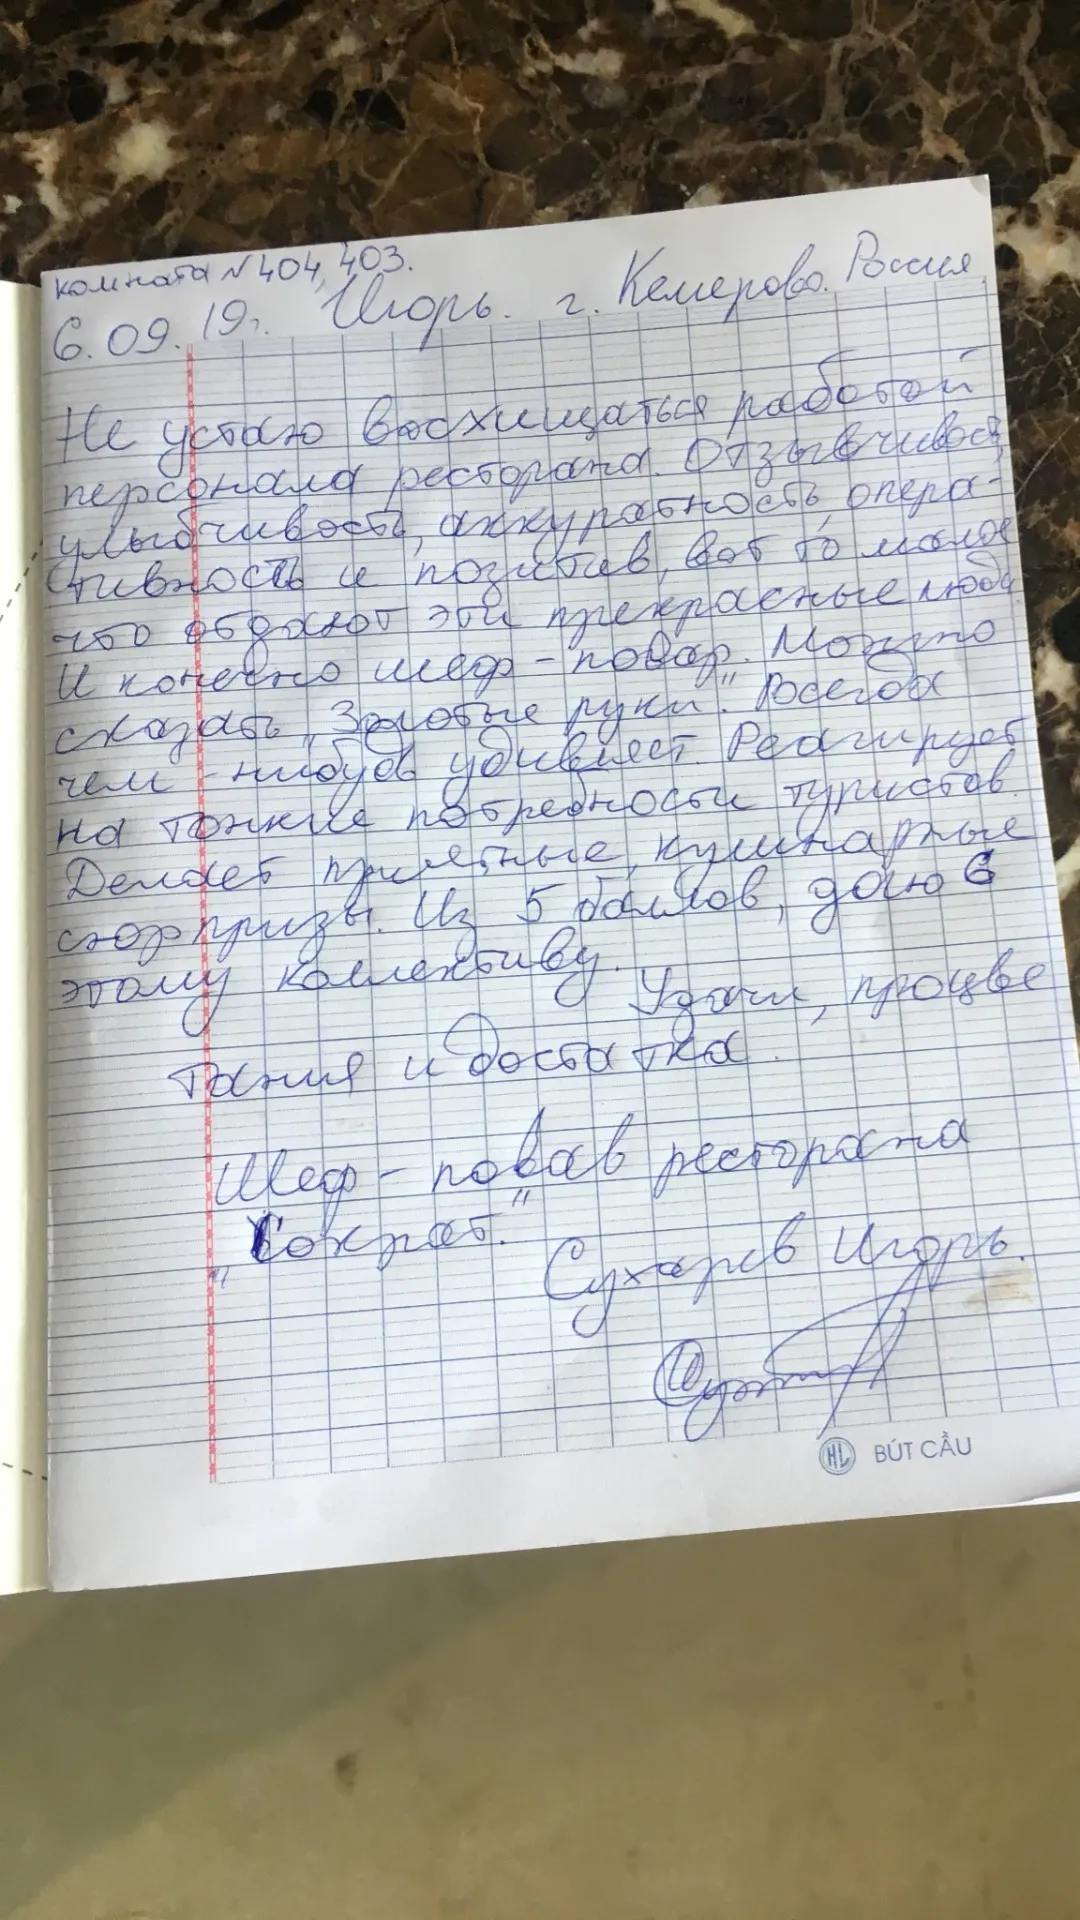 комната №404, 403.
6.09.19г. Игорь. г. Кемерово. Россия
Не устаю восхищаться работой
персонала ресторана. Отзывчивость,
улыбчивость, аккуратность, опера-
тивность и позитив, вот то малое
что отдают эти прекрасные люди
И конечно шеф-повар. Можно
сказать „Золотые руки". Всегда
чем-нибудь удивляет. Реагирует
на тонкие потребности туристов.
Делает приятные, кулинарные
сюрпризы. Из 5 баллов, даю 6
этому коллективу.
Удачи, процве
тания и достатка.
Шеф-повав ресторана
„Сократ."
Сухарев Игорь.
HL BÚT CẦU